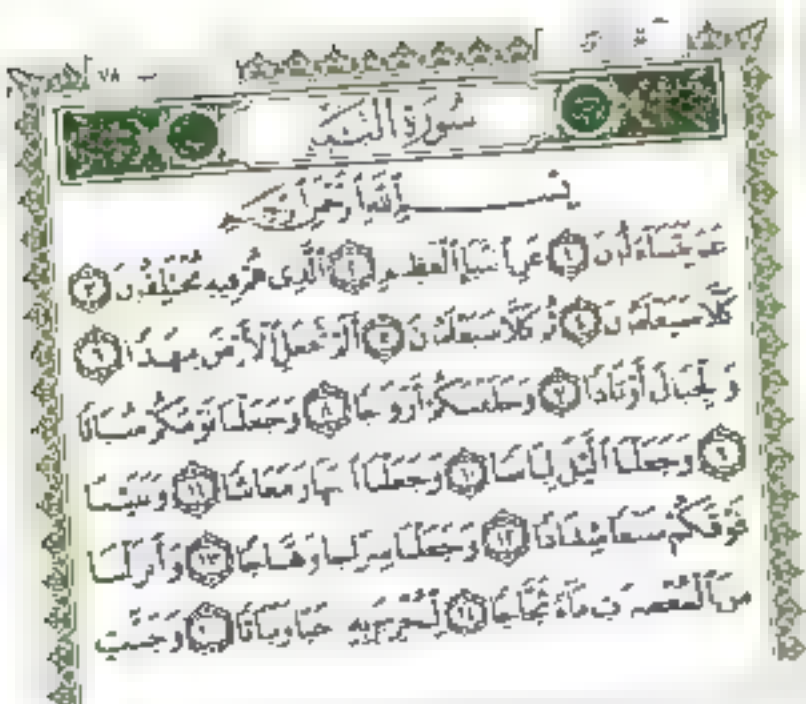 ٧٨
سُورَةُ النَّبَإِ
بِسْمِ اللَّهِ الرَّحْمَٰنِ الرَّحِيمِ
عَمَّ يَتَسَاءَلُونَ ١ عَنِ النَّبَإِ الْعَظِيمِ ٢ الَّذِي هُمْ فِيهِ مُخْتَلِفُونَ ٣
كَلَّا سَيَعْلَمُونَ ٤ ثُمَّ كَلَّا سَيَعْلَمُونَ ٥ أَلَمْ نَجْعَلِ الْأَرْضَ مِهَادًا ٦
وَالْجِبَالَ أَوْتَادًا ٧ وَخَلَقْنَاكُمْ أَزْوَاجًا ٨ وَجَعَلْنَا نَوْمَكُمْ سُبَاتًا
٩ وَجَعَلْنَا اللَّيْلَ لِبَاسًا ١٠ وَجَعَلْنَا النَّهَارَ مَعَاشًا ١١ وَبَنَيْنَا
فَوْقَكُمْ سَبْعًا شِدَادًا ١٢ وَجَعَلْنَا سِرَاجًا وَهَّاجًا ١٣ وَأَنزَلْنَا
مِنَ الْمُعْصِرَاتِ مَاءً ثَجَّاجًا ١٤ لِّنُخْرِجَ بِهِ حَبًّا وَنَبَاتًا ١٥ وَجَنَّاتٍ